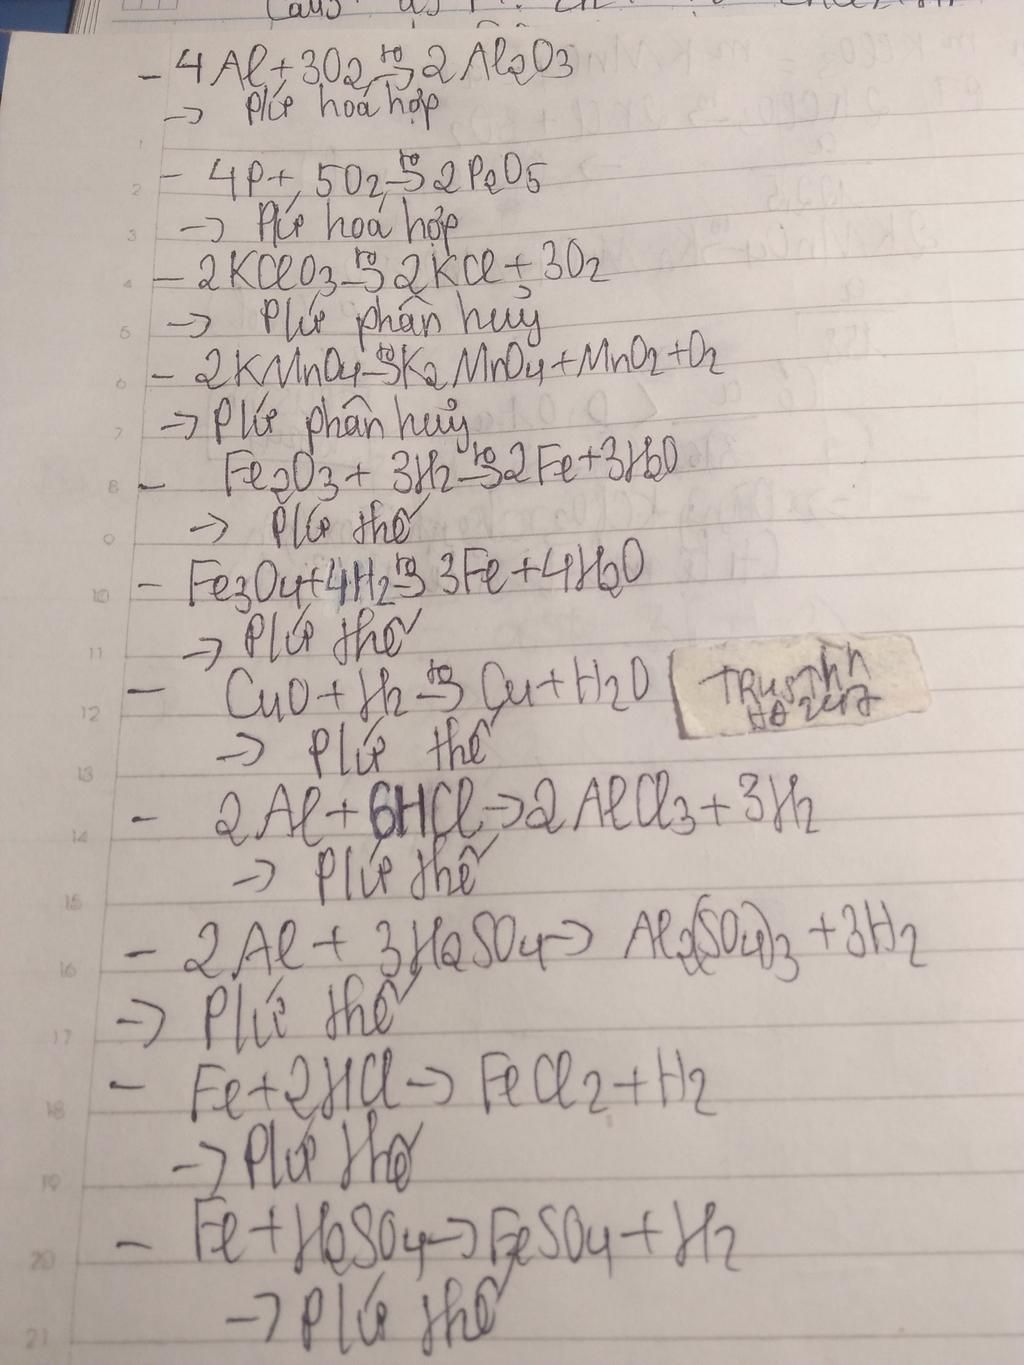 - 4Al + 3O2 to→ 2Al2O3
→ Pứ hoá hợp
- 4P + 5O2 to→ 2P2O5
→ Pứ hoá hợp
- 2KClO3 to→ 2KCl + 3O2
→ Pứ phân huỷ
- 2KMnO4 to→ K2MnO4 + MnO2 + O2
→ Pứ phân huỷ
- Fe2O3 + 3H2 to→ 2Fe + 3H2O
→ Pứ thế
- Fe3O4 + 4H2 to→ 3Fe + 4H2O
→ Pứ thế
- CuO + H2 to→ Cu + H2O
→ Pứ thế
- 2Al + 6HCl → 2AlCl3 + 3H2
→ Pứ thế
- 2Al + 3H2SO4 → Al2(SO4)3 + 3H2
→ Pứ thế
- Fe + 2HCl → FeCl2 + H2
→ Pứ thế
- Fe + H2SO4 → FeSO4 + H2
→ Pứ thế